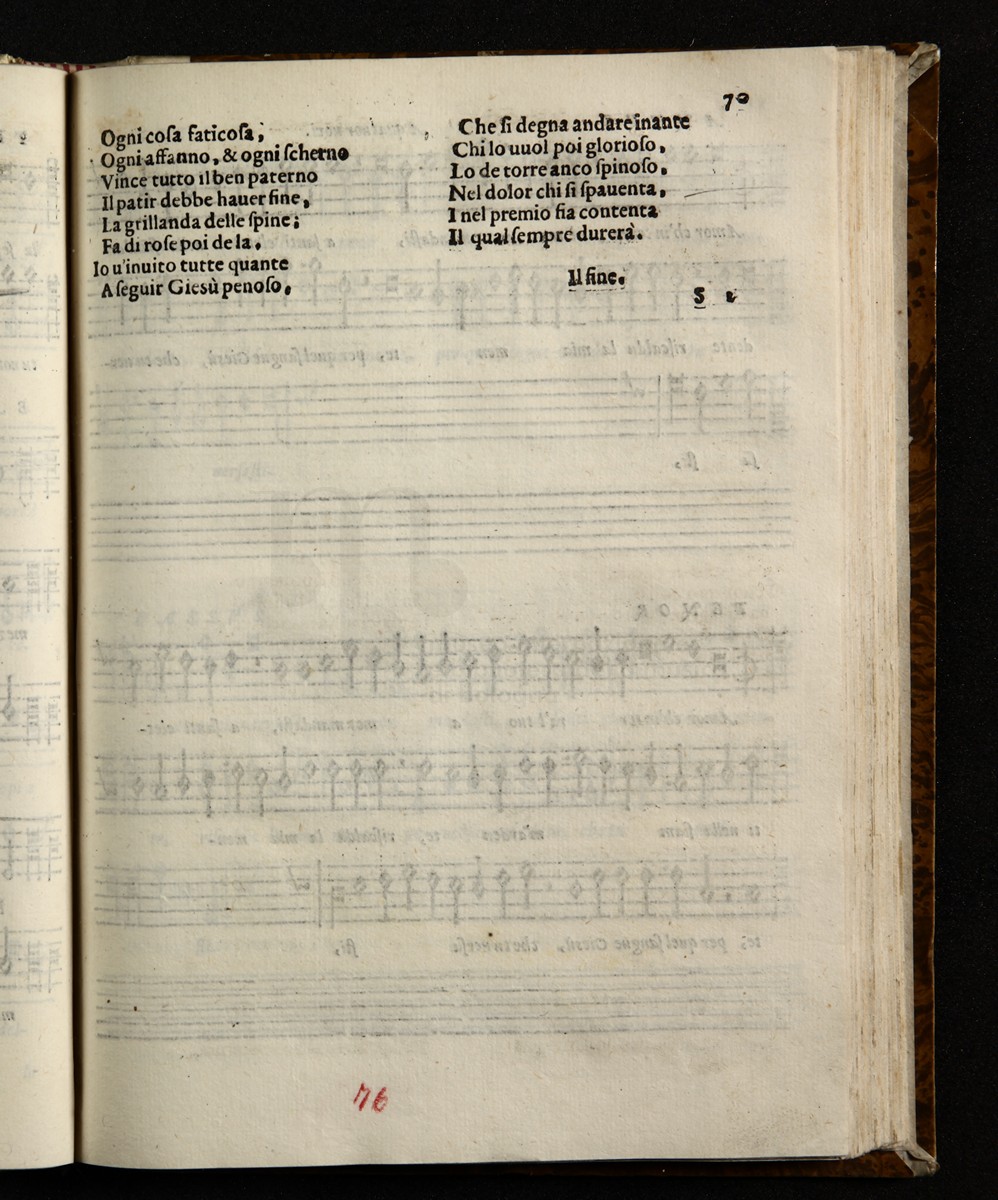 70
Ogni coſa faticoſa,
Ogni affanno, & ogni ſcherno
Vince tutto il ben paterno
Il patir debbe hauer fine,
La grillanda delle ſpine;
Fa di roſe poi de la,
Io u'inuito tutte quante
A ſeguir Gieſù penoſo,
Che ſi degna andare inante
Chi lo uuol poi glorioſo,
Lo de torre anco ſpinoſo,
Nel dolor chi ſi ſpauenta,
I nel premio fia contenta
Il qual ſempre durerà.
Il fine.
S
76